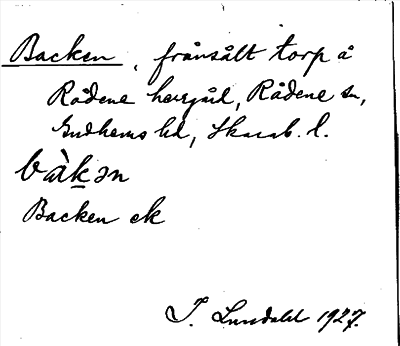 Backen, frånsålt torp å
Rådene herrgård, Rådene sn,
Gudhems hd, Skarab. l.
bàkən
Backen ek
I. Lundahl 1927.